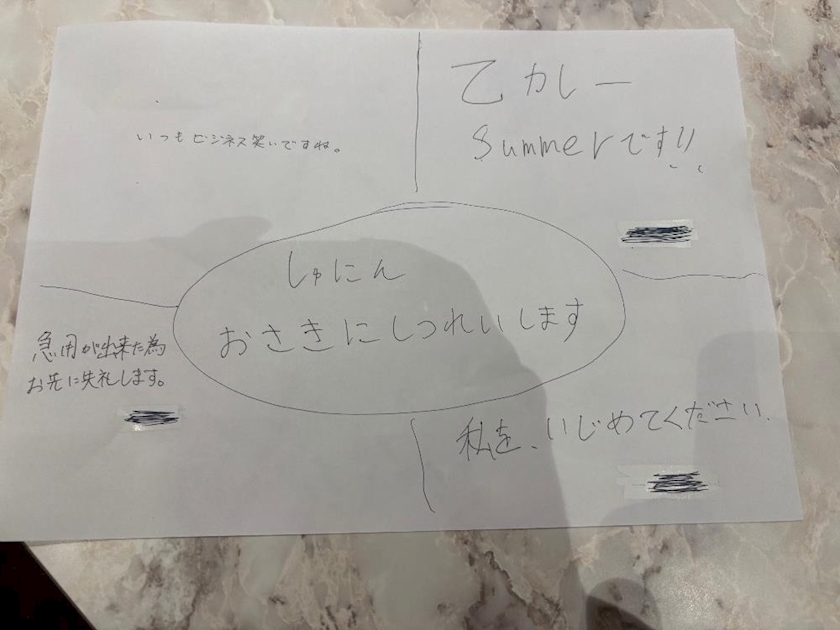 いつもビジネス笑いですね。
乙カレー
Summerです!!
しゅにん
おさきにしつれいします
急用が出来た為
お先に失礼します。
私を、いじめてください.